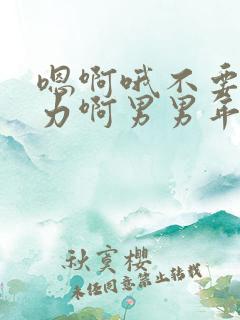 嗯啊哦不要
力啊男男年
秋寞樱
未经同意禁止转载